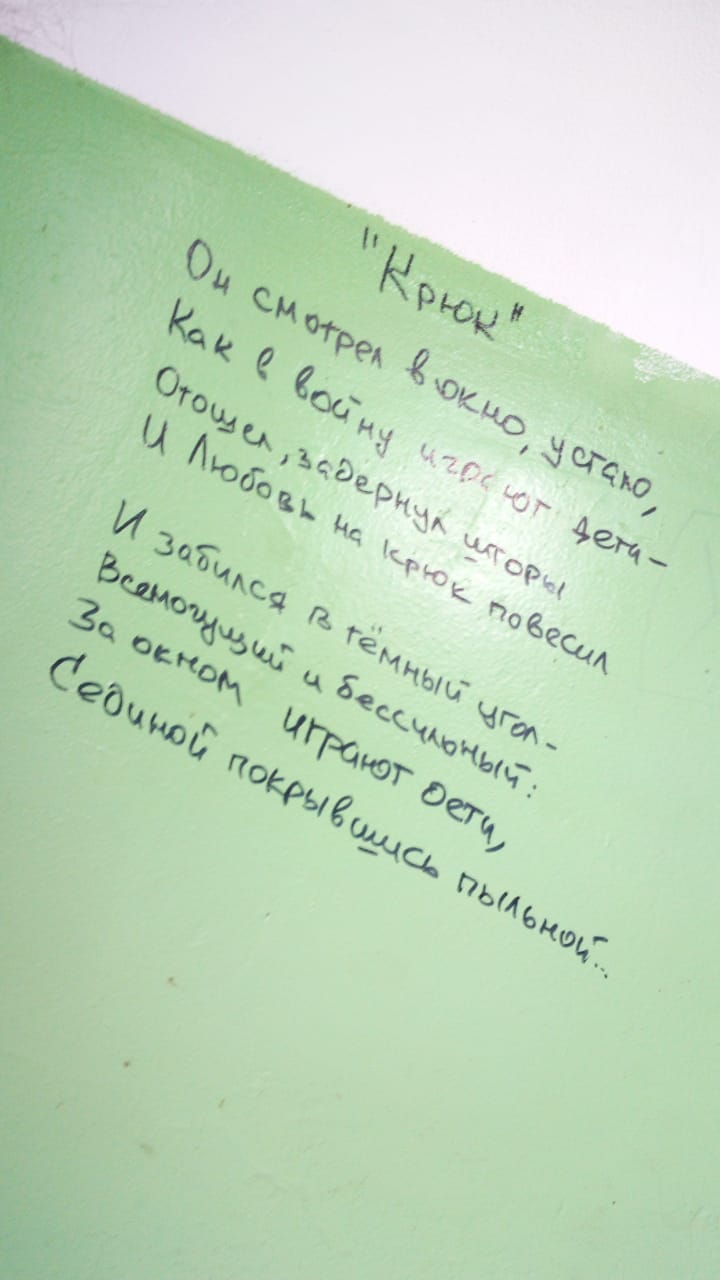 "Крюк"
Он смотрел в окно, устало,
Как в войну играют дети -
Отошел, задернул шторы
И Любовь на крюк повесил
И забился в тёмный угол -
Всемогущий и бессильный:
За окном играют дети,
Сединой покрывшись пыльной...